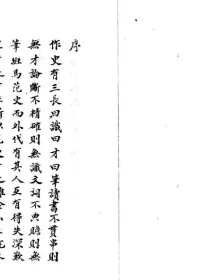 序
作史有三長曰識曰才曰筆讀書不貫串則
無才論斷不精確則無識文詞不典贍則無
筆班馬范史而外代有其人互有得失深歎